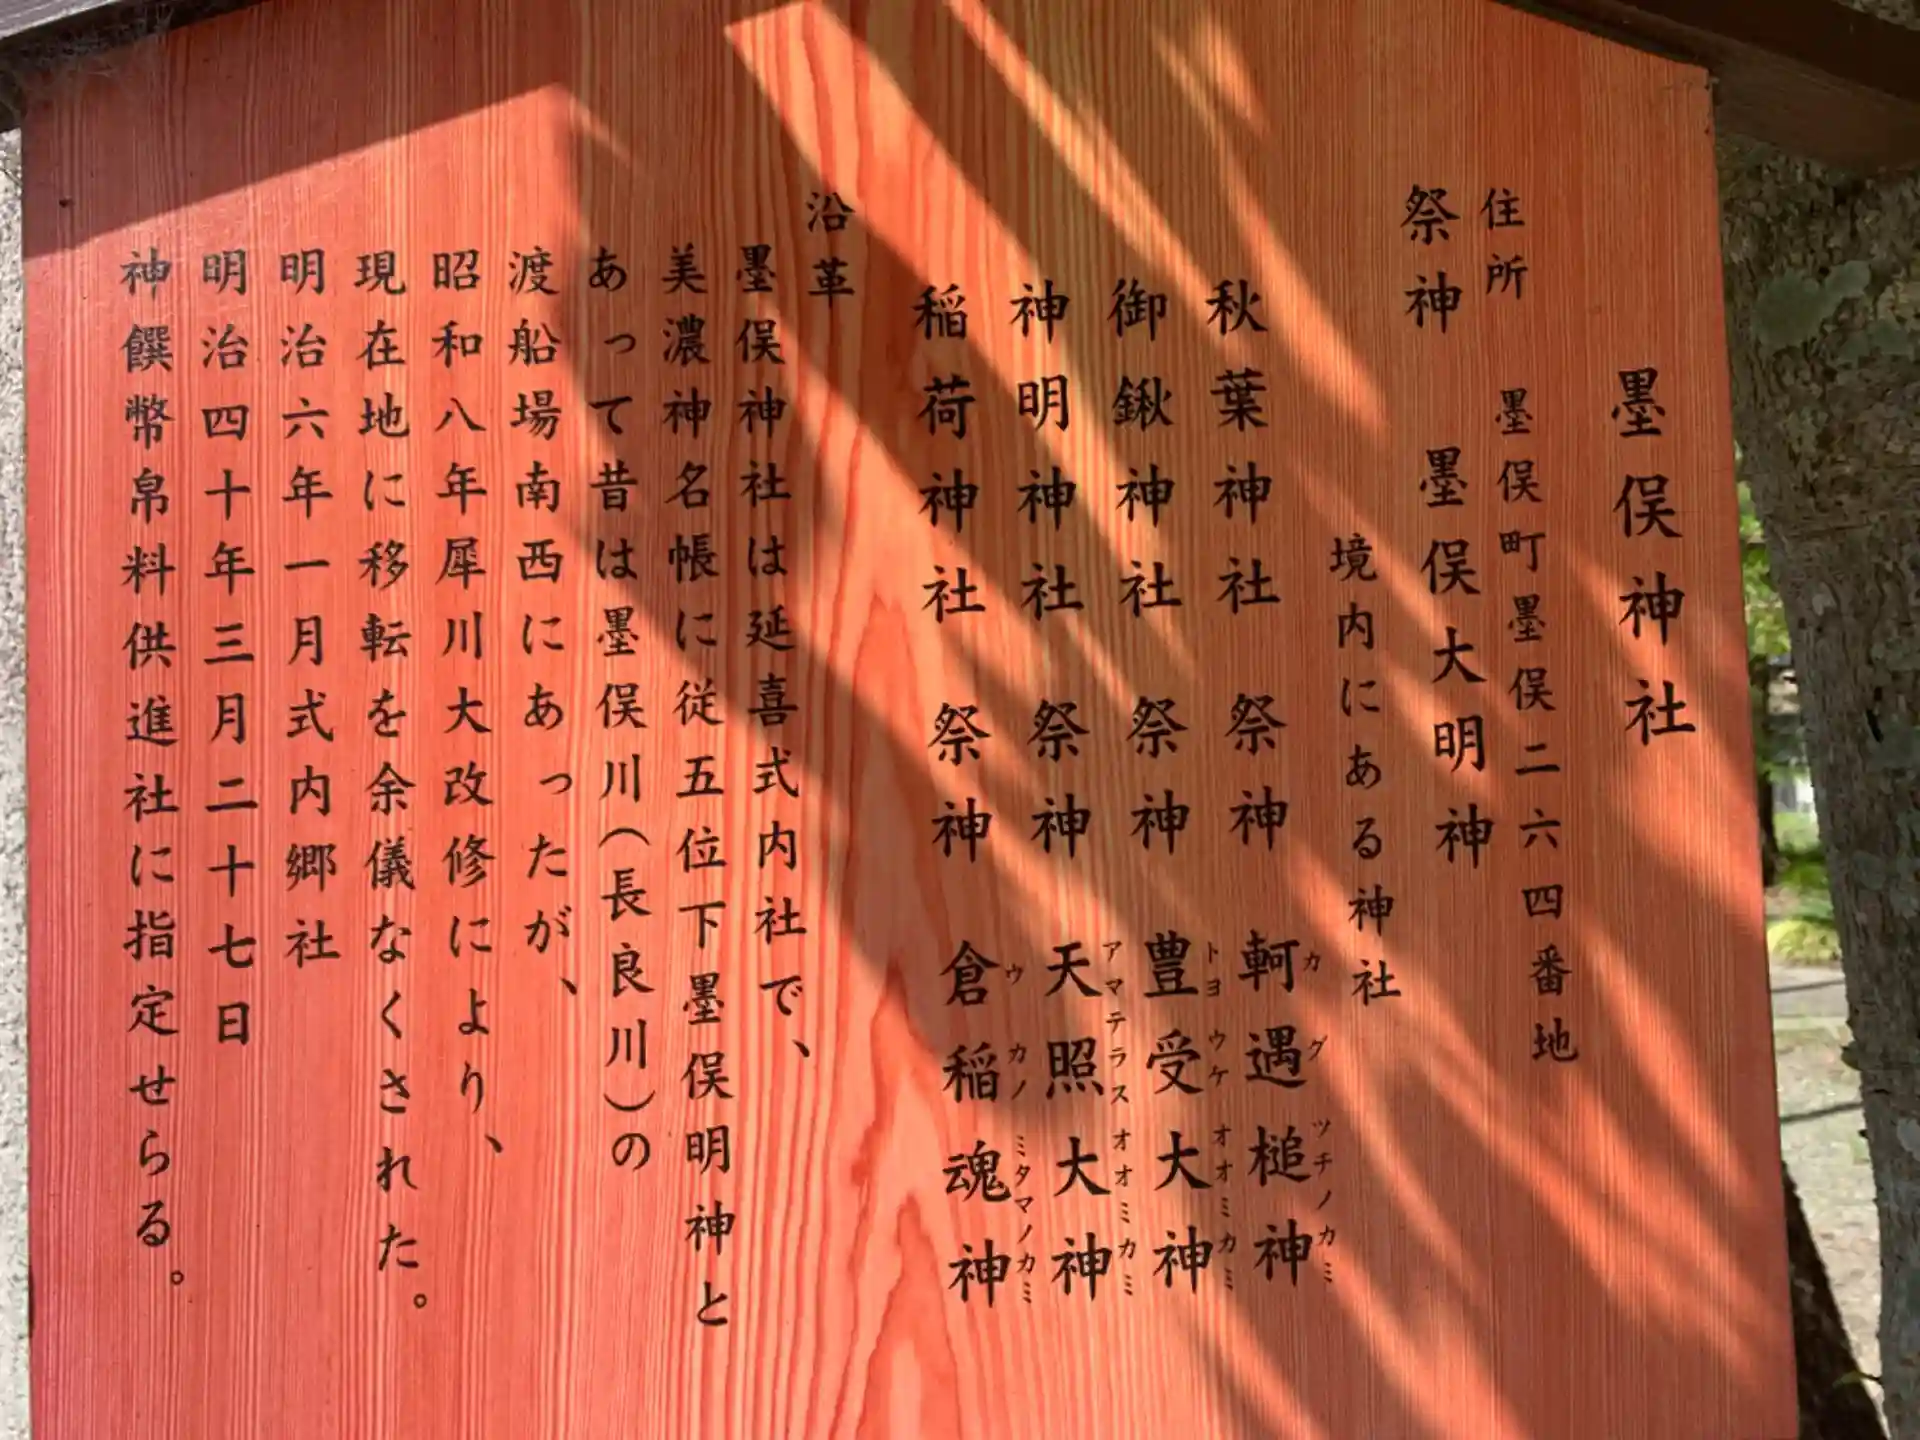 墨俣神社
住所　墨俣町墨俣二六四番地
祭神　墨俣大明神
境内にある神社
秋葉神社　祭神　軻遇槌神
カグツチノカミ
御鍬神社　祭神　豊受大神
トヨウケオオミカミ
神明神社　祭神　天照大神
アマテラスオオミカミ
稲荷神社　祭神　倉稲魂神
ウカノミタマノカミ
沿革
墨俣神社は延喜式内社で、
美濃神名帳に従五位下墨俣明神と
あって昔は墨俣川(長良川)の
渡船場南西にあったが、
昭和八年犀川大改修により、
現在地に移転を余儀なくされた。
明治六年一月式内郷社
明治四十年三月二十七日
神饌幣帛料供進社に指定せらる。